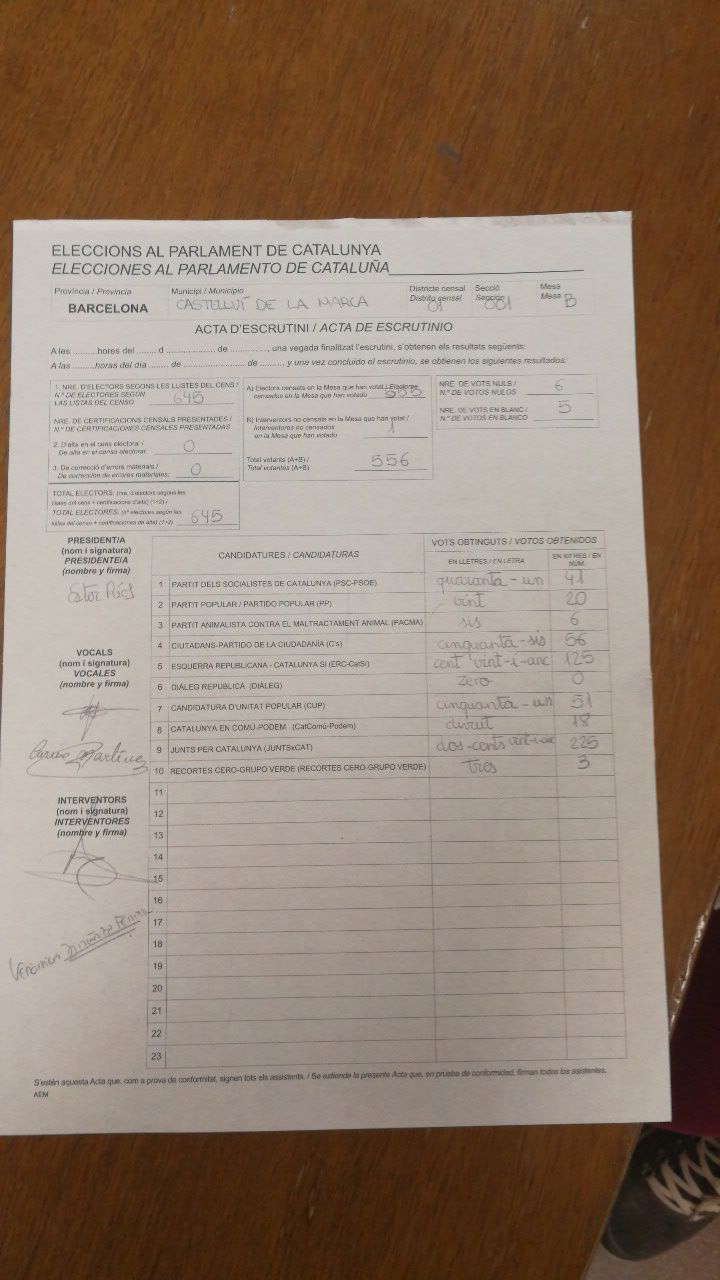 ELECCIONS AL PARLAMENT DE CATALUNYA
ELECCIONES AL PARLAMENTO DE CATALUÑA
Província / Provincia
BARCELONA
Municipi / Municipio
CASTELLVÍ DE LA MARCA
Districte censal
Distrito censal
01
Secció
Sección
001
Mesa
Mesa B
ACTA D'ESCRUTINI / ACTA DE ESCRUTINIO
A les ..........hores del ........ d .................... de ..............., una vegada finalitzat l'escrutini, s'obtenen els resultats següents:
A las .........horas del día ........ de ........................ de .......... y una vez concluido el escrutinio, se obtienen los siguientes resultados:
1. NRE. D'ELECTORS SEGONS LES LLISTES DEL CENS /
N.º DE ELECTORES SEGÚN
LAS LISTAS DEL CENSO
645
NRE. DE CERTIFICACIONS CENSALS PRESENTADES /
N.º DE CERTIFICACIONES CENSALES PRESENTADAS
2. D'alta en el cens electoral /
De alta en el censo electoral: 0
3. De correcció d'errors materials /
De corrección de errores materiales: 0
TOTAL ELECTORS: (nre. d'electors segons les
llistes del cens + certificacions d'alta) (1+2) /
TOTAL ELECTORES: (nº electores según las
listas del censo + certificaciones de alta) (1+2) 645
A) Electors censats en la Mesa que han votat / Electores
censados en la Mesa que han votado 555
B) Interventors no censats en la Mesa que han votat /
Interventores no censados
en la Mesa que han votado 1
Total votants (A+B) /
Total votantes (A+B) 556
NRE. DE VOTS NULS /
N.º DE VOTOS NULOS 6
NRE. DE VOTS EN BLANC /
N.º DE VOTOS EN BLANCO 5
PRESIDENT/A
(nom i signatura)
PRESIDENTE/A
(nombre y firma)
Ester
VOCALS
(nom i signatura)
VOCALES
(nombre y firma)
Martínez
INTERVENTORS
(nom i signatura)
INTERVENTORES
(nombre y firma)
CANDIDATURES / CANDIDATURAS
VOTS OBTINGUTS / VOTOS OBTENIDOS
EN LLETRES / EN LETRA
EN XIFRES / EN NÚM.
1 PARTIT DELS SOCIALISTES DE CATALUNYA (PSC-PSOE) quaranta-un 41
2 PARTIT POPULAR / PARTIDO POPULAR (PP) vint 20
3 PARTIT ANIMALISTA CONTRA EL MALTRACTAMENT ANIMAL (PACMA) sis 6
4 CIUTADANS-PARTIDO DE LA CIUDADANÍA (C's) cinquanta-sis 56
5 ESQUERRA REPUBLICANA - CATALUNYA SÍ (ERC-CatSí) cent vint-i-cinc 125
6 DIÀLEG REPUBLICÀ (DIÀLEG) zero 0
7 CANDIDATURA D'UNITAT POPULAR (CUP) cinquanta-un 51
8 CATALUNYA EN COMÚ-PODEM (CatComú-Podem) divuit 18
9 JUNTS PER CATALUNYA (JUNTSxCAT) dos-cents vint-i-cinc 225
10 RECORTES CERO-GRUPO VERDE (RECORTES CERO-GRUPO VERDE) tres 3
11
12
13
14
15
16
17
18
19
20
21
22
23
S'estén aquesta Acta que, com a prova de conformitat, signen tots els assistents. / Se extiende la presente Acta que, en prueba de conformidad, firman todos los asistentes.
AEM